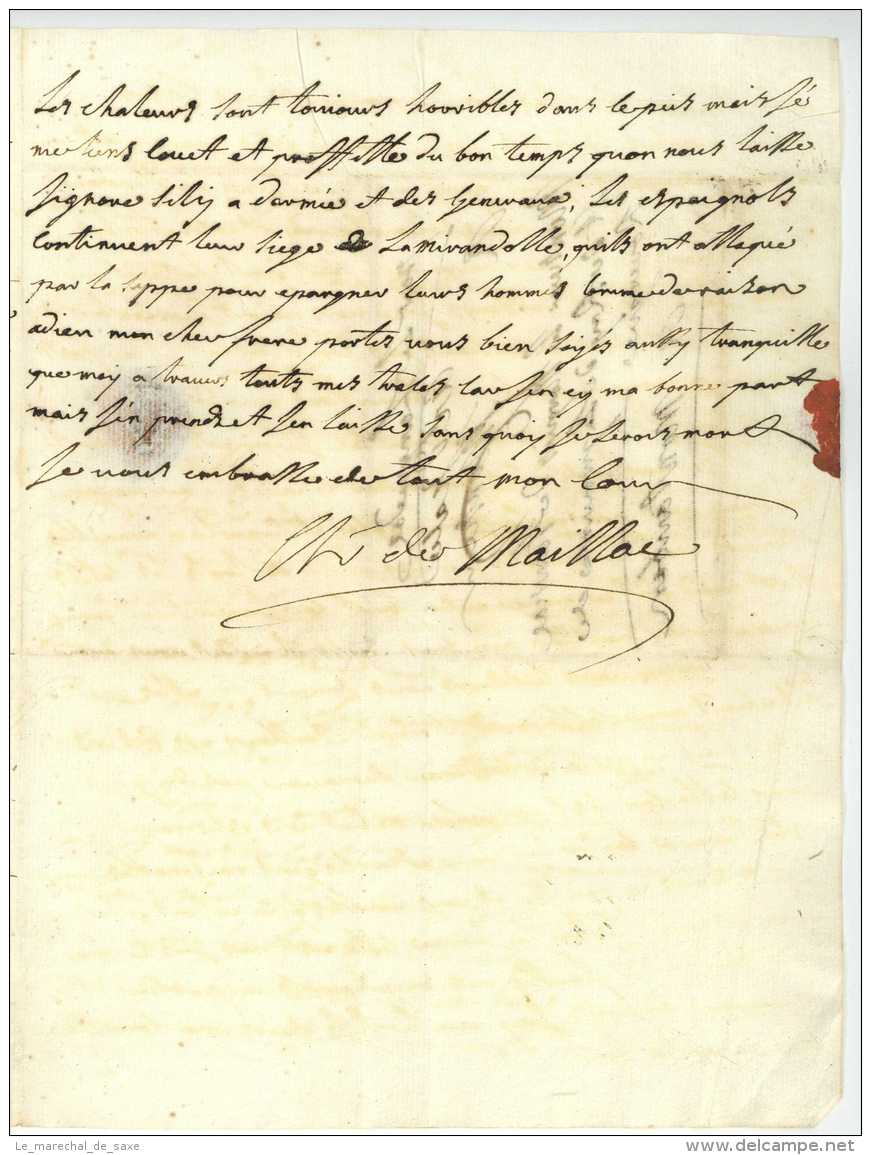 Les chaleurs sont toujours horribles dans le païs mais je
me tiens couet et proffitte du bon temps quon nous laisse
jignore sil y a darmée et des generaux, Les espaignols
continuent leur siege de Lamirandolle, quils ont attaqué
par la sappe pour epargner leurs hommes
adieu mon cher frere portes vous bien soiyés aussy tranquille
que moy a travers touts mes car jen ey ma bonne part
mais jen prends et jen laisse sans quoy je serois mort
Je vous embrasse de tout mon coeur
Ch^r de Maillac
Le_marechal_de_saxe
delcampe.net